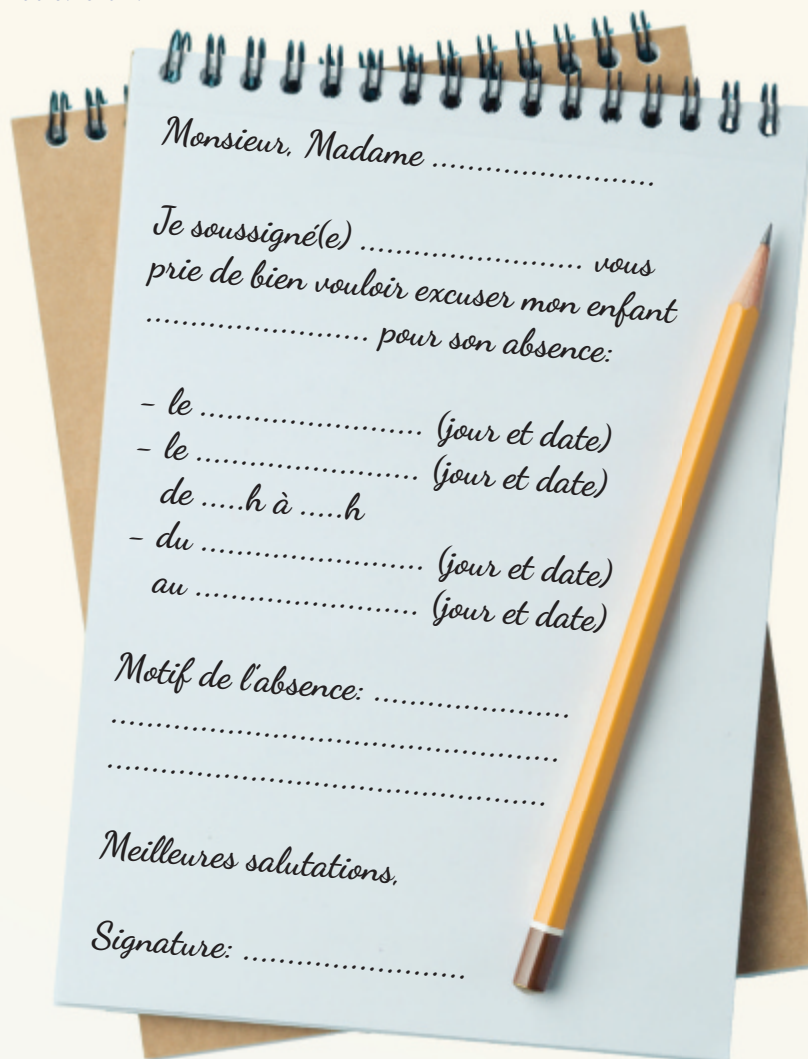 Monsieur, Madame .........................
Je soussigné(e) ......................... vous
prie de bien vouloir excuser mon enfant
......................... pour son absence:
- le ......................... (jour et date)
- le ......................... (jour et date)
de .....h à .....h
- du ......................... (jour et date)
au ......................... (jour et date)
Motif de l'absence: ......................
...................................................
..................................................
Meilleures salutations,
Signature: .........................